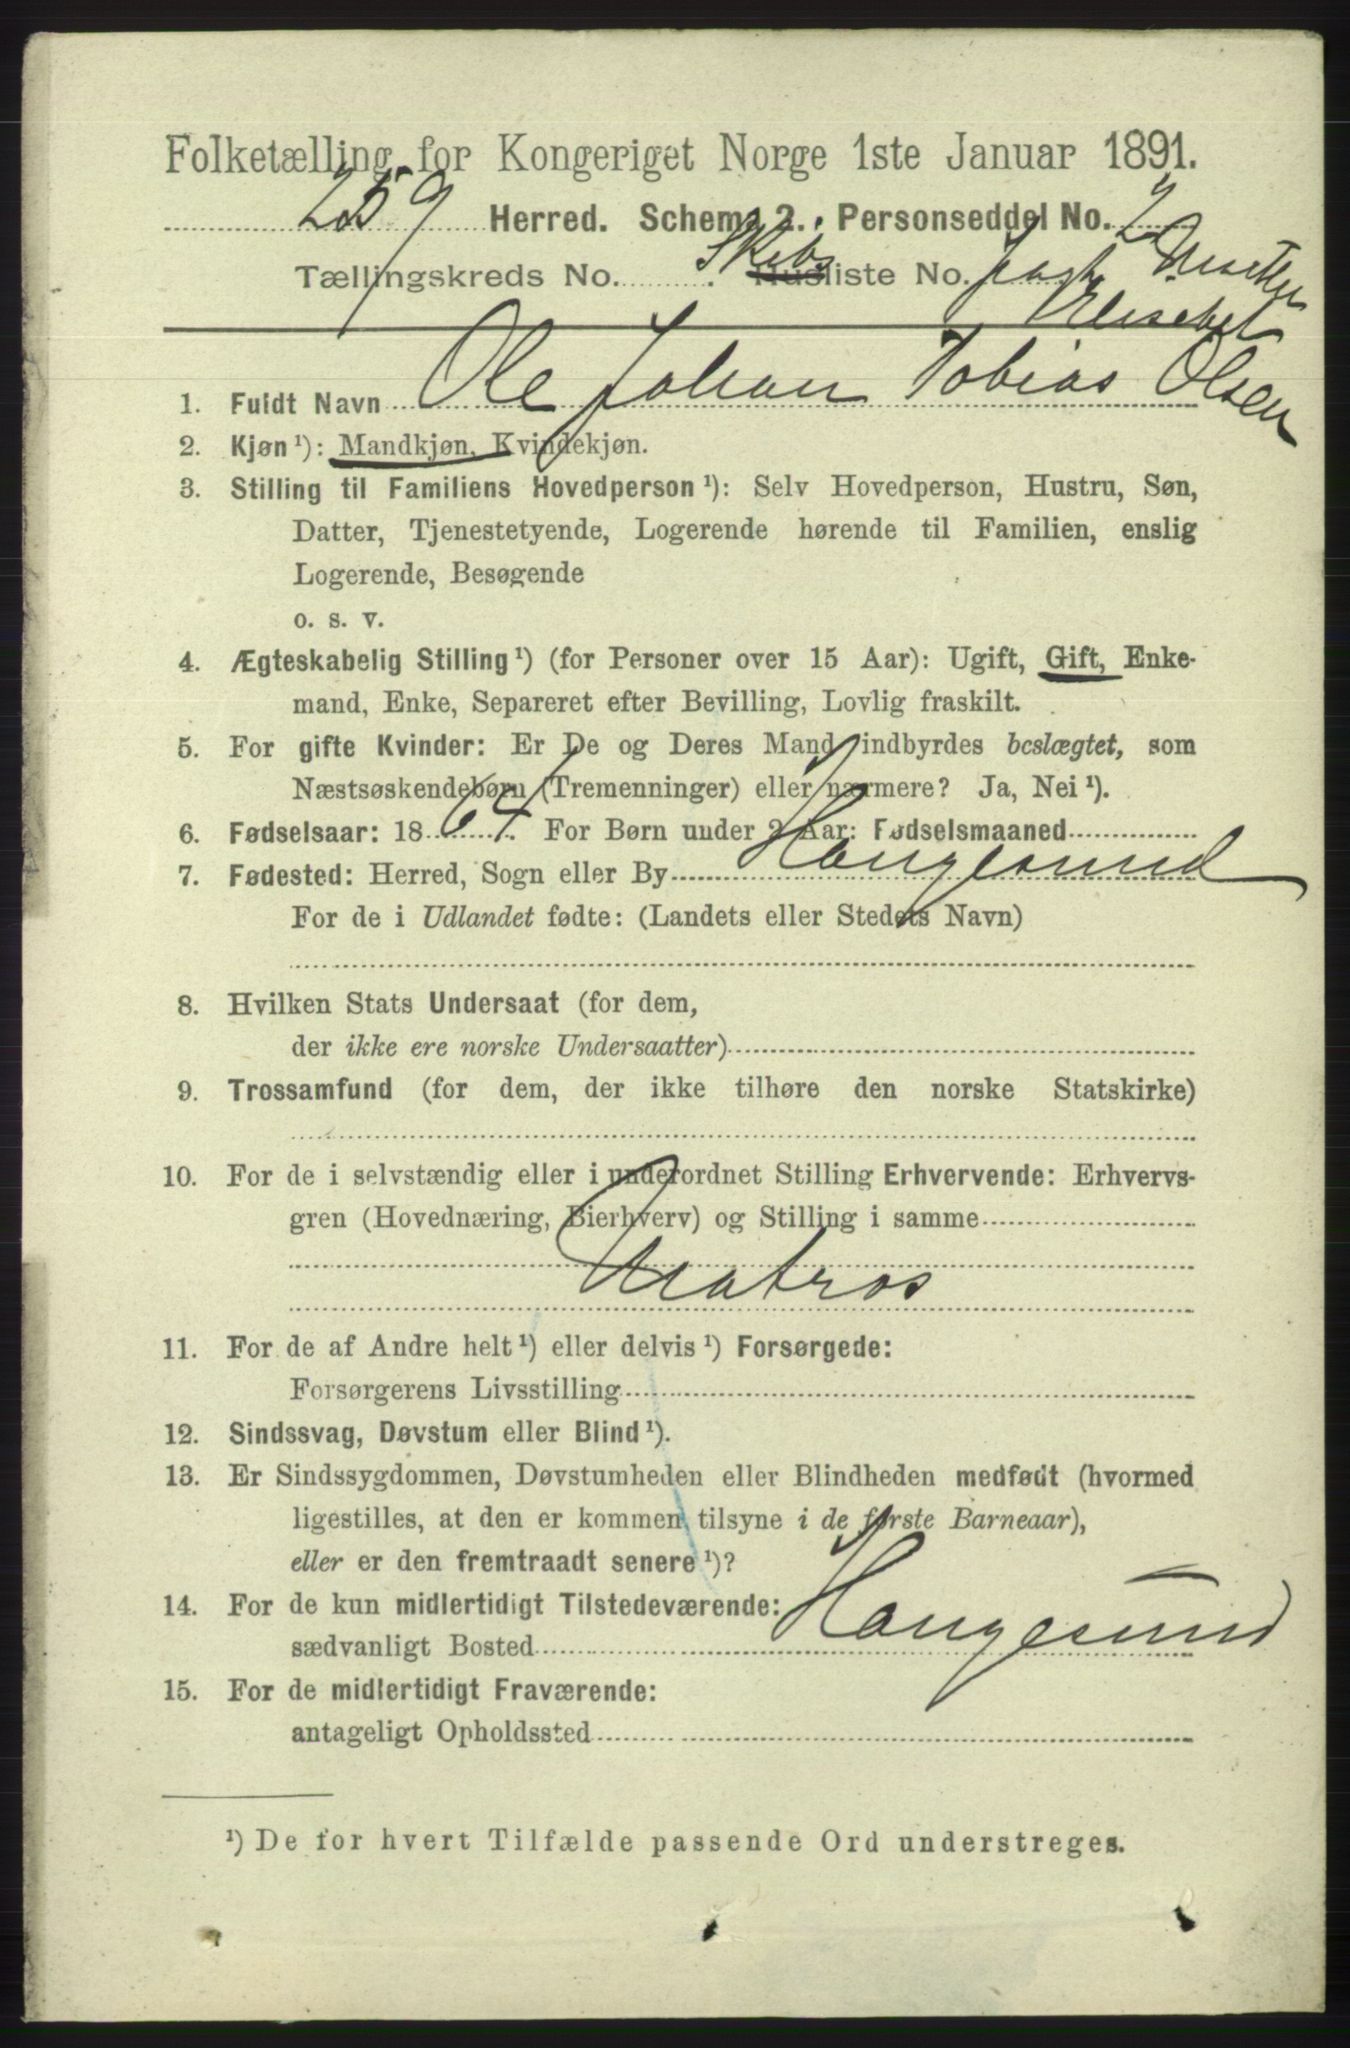 Folketælling for Kongeriget Norge 1ste Januar 1891.
259 Herred. Schema 2. Personseddel No. 2
Tællingskreds No. . Skibsliste No. Jagt
Elisabet
1. Fuldt Navn Ole Johan Tobias Olsen
2. Kjøn ¹): Mandkjøn, Kvindekjøn.
3. Stilling til Familiens Hovedperson ¹): Selv Hovedperson, Hustru, Søn,
Datter, Tjenestetyende, Logerende hørende til Familien, enslig
Logerende, Besøgende
o. s. v.
4. Ægteskabelig Stilling ¹) (for Personer over 15 Aar): Ugift, Gift, Enke-
mand, Enke, Separeret efter Bevilling, Lovlig fraskilt.
5. For gifte Kvinder: Er De og Deres Mand indbyrdes beslægtet, som
Næstsøskendebørn (Tremenninger) eller nærmere? Ja, Nei ¹).
6. Fødselsaar: 1864. For Børn under 2 Aar: Fødselsmaaned
7. Fødested: Herred, Sogn eller By Haugesund
For de i Udlandet fødte: (Landets eller Stedets Navn)
8. Hvilken Stats Undersaat (for dem,
der ikke ere norske Undersaatter)
9. Trossamfund (for dem, der ikke tilhøre den norske Statskirke)
10. For de i selvstændig eller i underordnet Stilling Erhvervende: Erhvervs-
gren (Hovednæring, Bierhverv) og Stilling i samme
Matros
11. For de af Andre helt ¹) eller delvis ¹) Forsørgede:
Forsørgerens Livsstilling
12. Sindssvag, Døvstum eller Blind ¹).
13. Er Sindssygdommen, Døvstumheden eller Blindheden medfødt (hvormed
ligestilles, at den er kommen tilsyne i de første Barneaar),
eller er den fremtraadt senere ¹)?
14. For de kun midlertidigt Tilstedeværende:
sædvanligt Bosted Haugesund
15. For de midlertidigt Fraværende:
antageligt Opholdssted
¹) De for hvert Tilfælde passende Ord understreges.